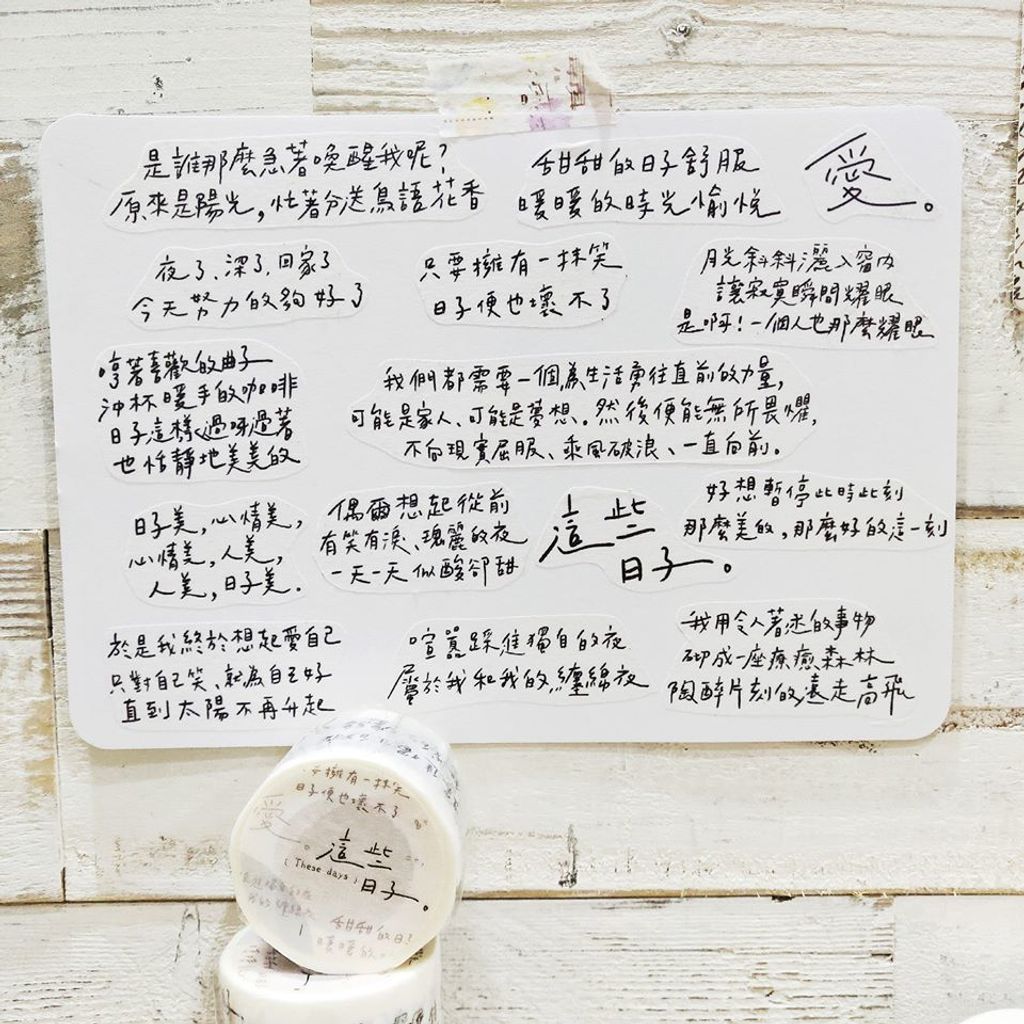 是誰那麼急著喚醒我呢?
原來是陽光,忙著分送鳥語花香
甜甜的日子舒服
暖暖的時光愉悅
愛。
夜了、深了、回家了
今天努力的夠好了
只要擁有一抹笑
日子便也壞不了
月光斜斜灑入窗內
讓寂寞瞬間耀眼
是啊!一個人也那麼耀眼
哼著喜歡的曲子
沖杯暖手的咖啡
日子這樣過呀過著
也恬靜地美美的
我們都需要一個為生活勇往直前的力量,
可能是家人、可能是夢想。然後便能無所畏懼,
不向現實屈服、乘風破浪、一直向前。
日子美,心情美,
心情美,人美,
人美,日子美.
偶爾想起從前
有笑有淚、瑰麗的夜
一天一天似酸卻甜
這些
日子。
好想暫停此時此刻
那麼美的,那麼好的這一刻
於是我終於想起愛自己
只對自己笑、就為自己好
直到太陽不再升起
喧囂踩進獨自的夜
屬於我和我的纏綿夜
我用令人著迷的事物
砌成一座療癒森林
陶醉片刻的遠走高飛
要擁有一抹笑
日子便也壞不了
愛
這些
( These days )
日子。
甜甜的日子
暖暖的